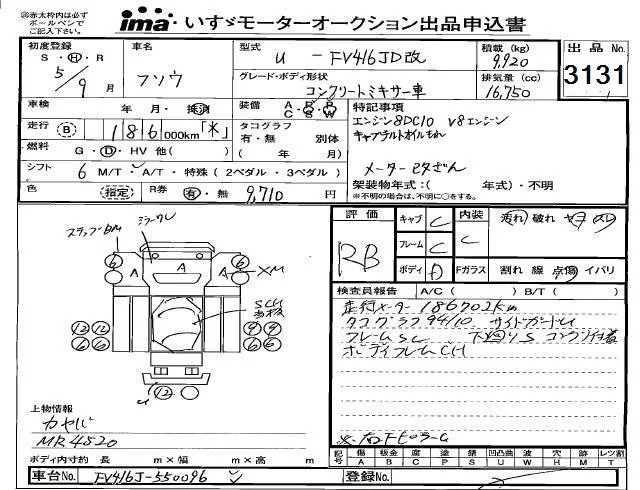 ※赤太枠内は必ず
ボールペンで
ご記入下さい。
ima・いすゞモーターオークション出品申込書
初度登録 車名 型式 U - FV416JD改 積載 (kg) 9,920 出品No.
S・H・R 5/9月 フソウ グレード・ボディ形状 コンクリートミキサー車 排気量 (cc) 16,750 3131
車検 年・月・抹消 装備 A C P B P S W 特記事項
走行 B 186 000km「*」 タコグラフ 有・無 別体 エンジン8DC10 V8エンジン
燃料 G・D・HV 他( ) ( 年/ 月) キャブチルトオイルもれ
シフト 6 M/T・A/T・特殊(2ペダル・3ペダル) メーター改ざん
色 (指定) R券 有・無 9,710円 架装物年式:( 年式)・不明
※不明の場合は、不明に○をする。
評価 キャブ C 内装 汚れ 破れ
RB フレーム C C
ボディ D Fガラス 割れ 線 点傷 イバリ
ステップBM
A A A
XM
SCU
6 6 6 6
12 12 9 9
6 6 6 6
12
検査員報告 A/C ( ) B/T ( )
走行メーター 186702km
タコグラフ 94/10 サイドガードU
フレームSC 下廻りS コンクリ付着
ボディフレームCH
上物情報
カヤバ
MR4520
ボディ内寸約 長 m×幅 m×高 m
記号 傷 A 板金 B 腐 C 塗 P 錆 S 凹凸曲 U 波 W 穴 H 欠 M レツ割 T
車台No. FV416J-550096 登録No.